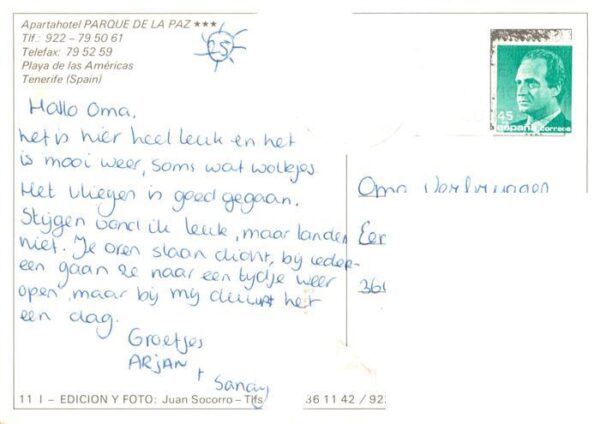 Apartahotel PARQUE DE LA PAZ ★★★
Tlf.: 922 - 79 50 61
Telefax: 79 52 59
Playa de las Américas
Tenerife (Spain)
25°
45
España correos
Hallo Oma,
het is hier heel leuk en het
is mooi weer, soms wat wolkjes.
Het vliegen is goed gegaan.
Stijgen vond ik leuk, maar landen
niet. Je oren slaan dicht, bij ieder-
een gaan ze naar een tijdje weer
open, maar bij mij duurt het
een dag.
Groetjes
ARJAN
+
Sandy
Oma
Eer
36
11 I - EDICION Y FOTO: Juan Socorro - Tlfs
36 11 42 / 922